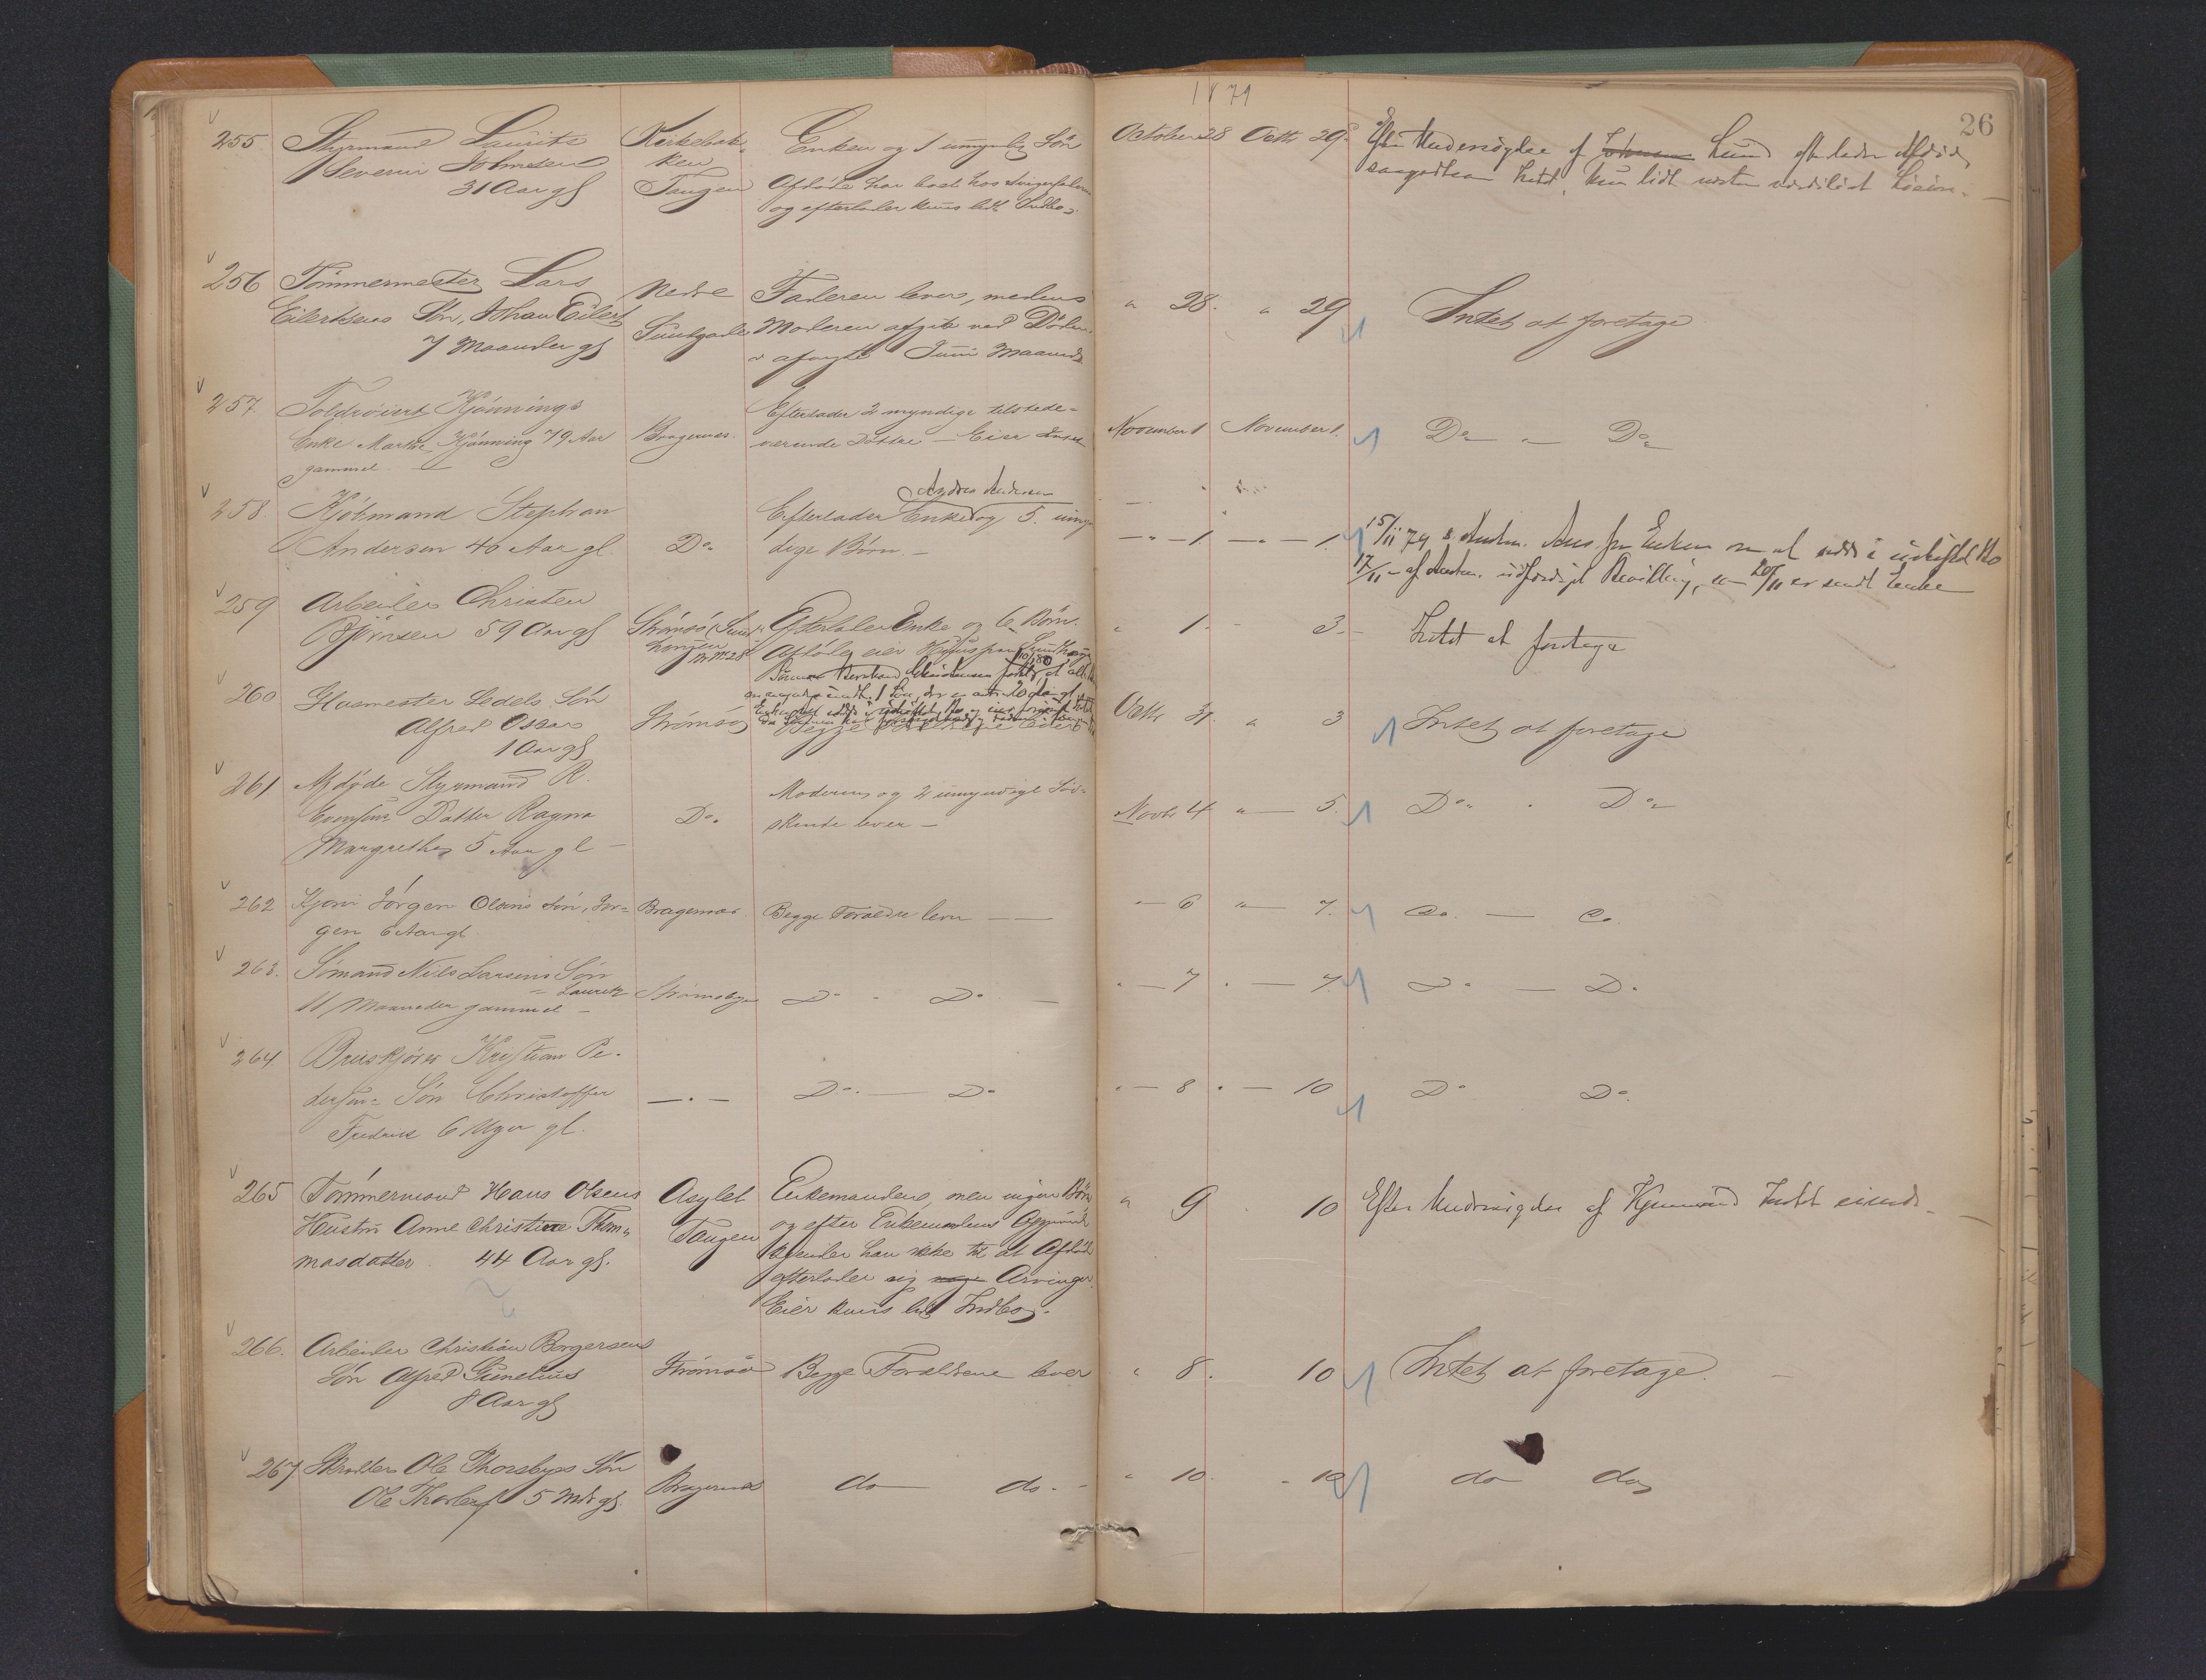 1879
26
255 Styrmand Laurits Kirkebak- Enken og 1 umyndig Søn October 28 Octbr 29 Efter Undersøgelse af Johnsen Lund efterlader Afdøde
Severin Johnsen ken
31 Aar gl Tangen Afdøde har boet hos Svigerfaderen saagodtsom Intet, kun lidt næsten værdiløst
og efterlader kuns lidt Indbo.
256 Tømmermester Lars Nedre Faderen lever, medens " 28. " 29 Intet at foretage
Eilertsens Søn, Johan Eilert Sundgade Moderen afgik ved Døden
7 Maaneder gl i afvigte Juni Maaned
257. Toldrøiert Kjønnings Efterlader 2 myndige tilstede-
Enke Marthe Kjønning 79 Aar Bragernes. værende Døttre — Eier November 1 November 1. Do " Do
gammel —
Andrea Andersen
258. Kjøbmand Stephan Efterlader Enke og 5. umyn-
Andersen 40 Aar gl. Do. dige Børn. — — " — 1. — " — 1. 15/11 79 Ans. fra Enken om at sidde i uskiftet Bo
17/11 - af udfærdiget Bevilling, 20/11 er sendt Enken
259 Arbeider Christen
Bjørnsen 59 Aar gl Strømsø Efterlader Enke og 6 Børn. " 1. - 3. - Intet at foretage
No 28 Afdøde eier Huus paa
260 Huusmester Ledels Søn
Alfred Oscar Strømsø Begge Forældrene lever Octbr 31. " 3 Intet at foretage
1 Aar gl
261. Afdøde Styrmand R. Moderen og 2 umyndige Sød-
Evensens Datter Ragna Do. skende lever — Novbr 4 " — 5. Do " Do
Margrethe 5 Aar gl —
262 Jørgen Olsens Søn, Jør- Bragernes. Begge Forældre lever — — " — 6 " — 7. Do. — Do
gen 6 Aar gl.
263. Sømand Nils Larsens Søn
Lauritz Strømsbyen Do - Do — " — 7 " — 7. Do — Do
11 Maaneder gammel —
264. Bruskjører Kristian Pe-
dersens Søn Christoffer — " — Do. — Do " — 8 " — 10 Do Do.
Fredrik 6 Uger gl.
265 Tømmermand Hans Olsens Asylet Enkemanden, men ingen Børn " 9 . 10 Efter Undersøgelse af Intet eiende.
Hustru Anne Christine Thom- Tangen og efter Enkemandens Opgivende
masdatter. 44 Aar gl. kjender han ikke til at Afdøde
efterlader sig nogen Arvinger.
Eier kuns lidt Indbo.
266. Arbeider Christian Borgersens
Søn Alfred Gunelius Strømsø Begge Forældrene lever " 8. 10 Intet at foretage. —
8 Aar gl
267. Skrædder Ole Thorsbyes Søn
Ole Thorleif 5 Mdr gl Bragernes do do. - " 10. - 10 do do